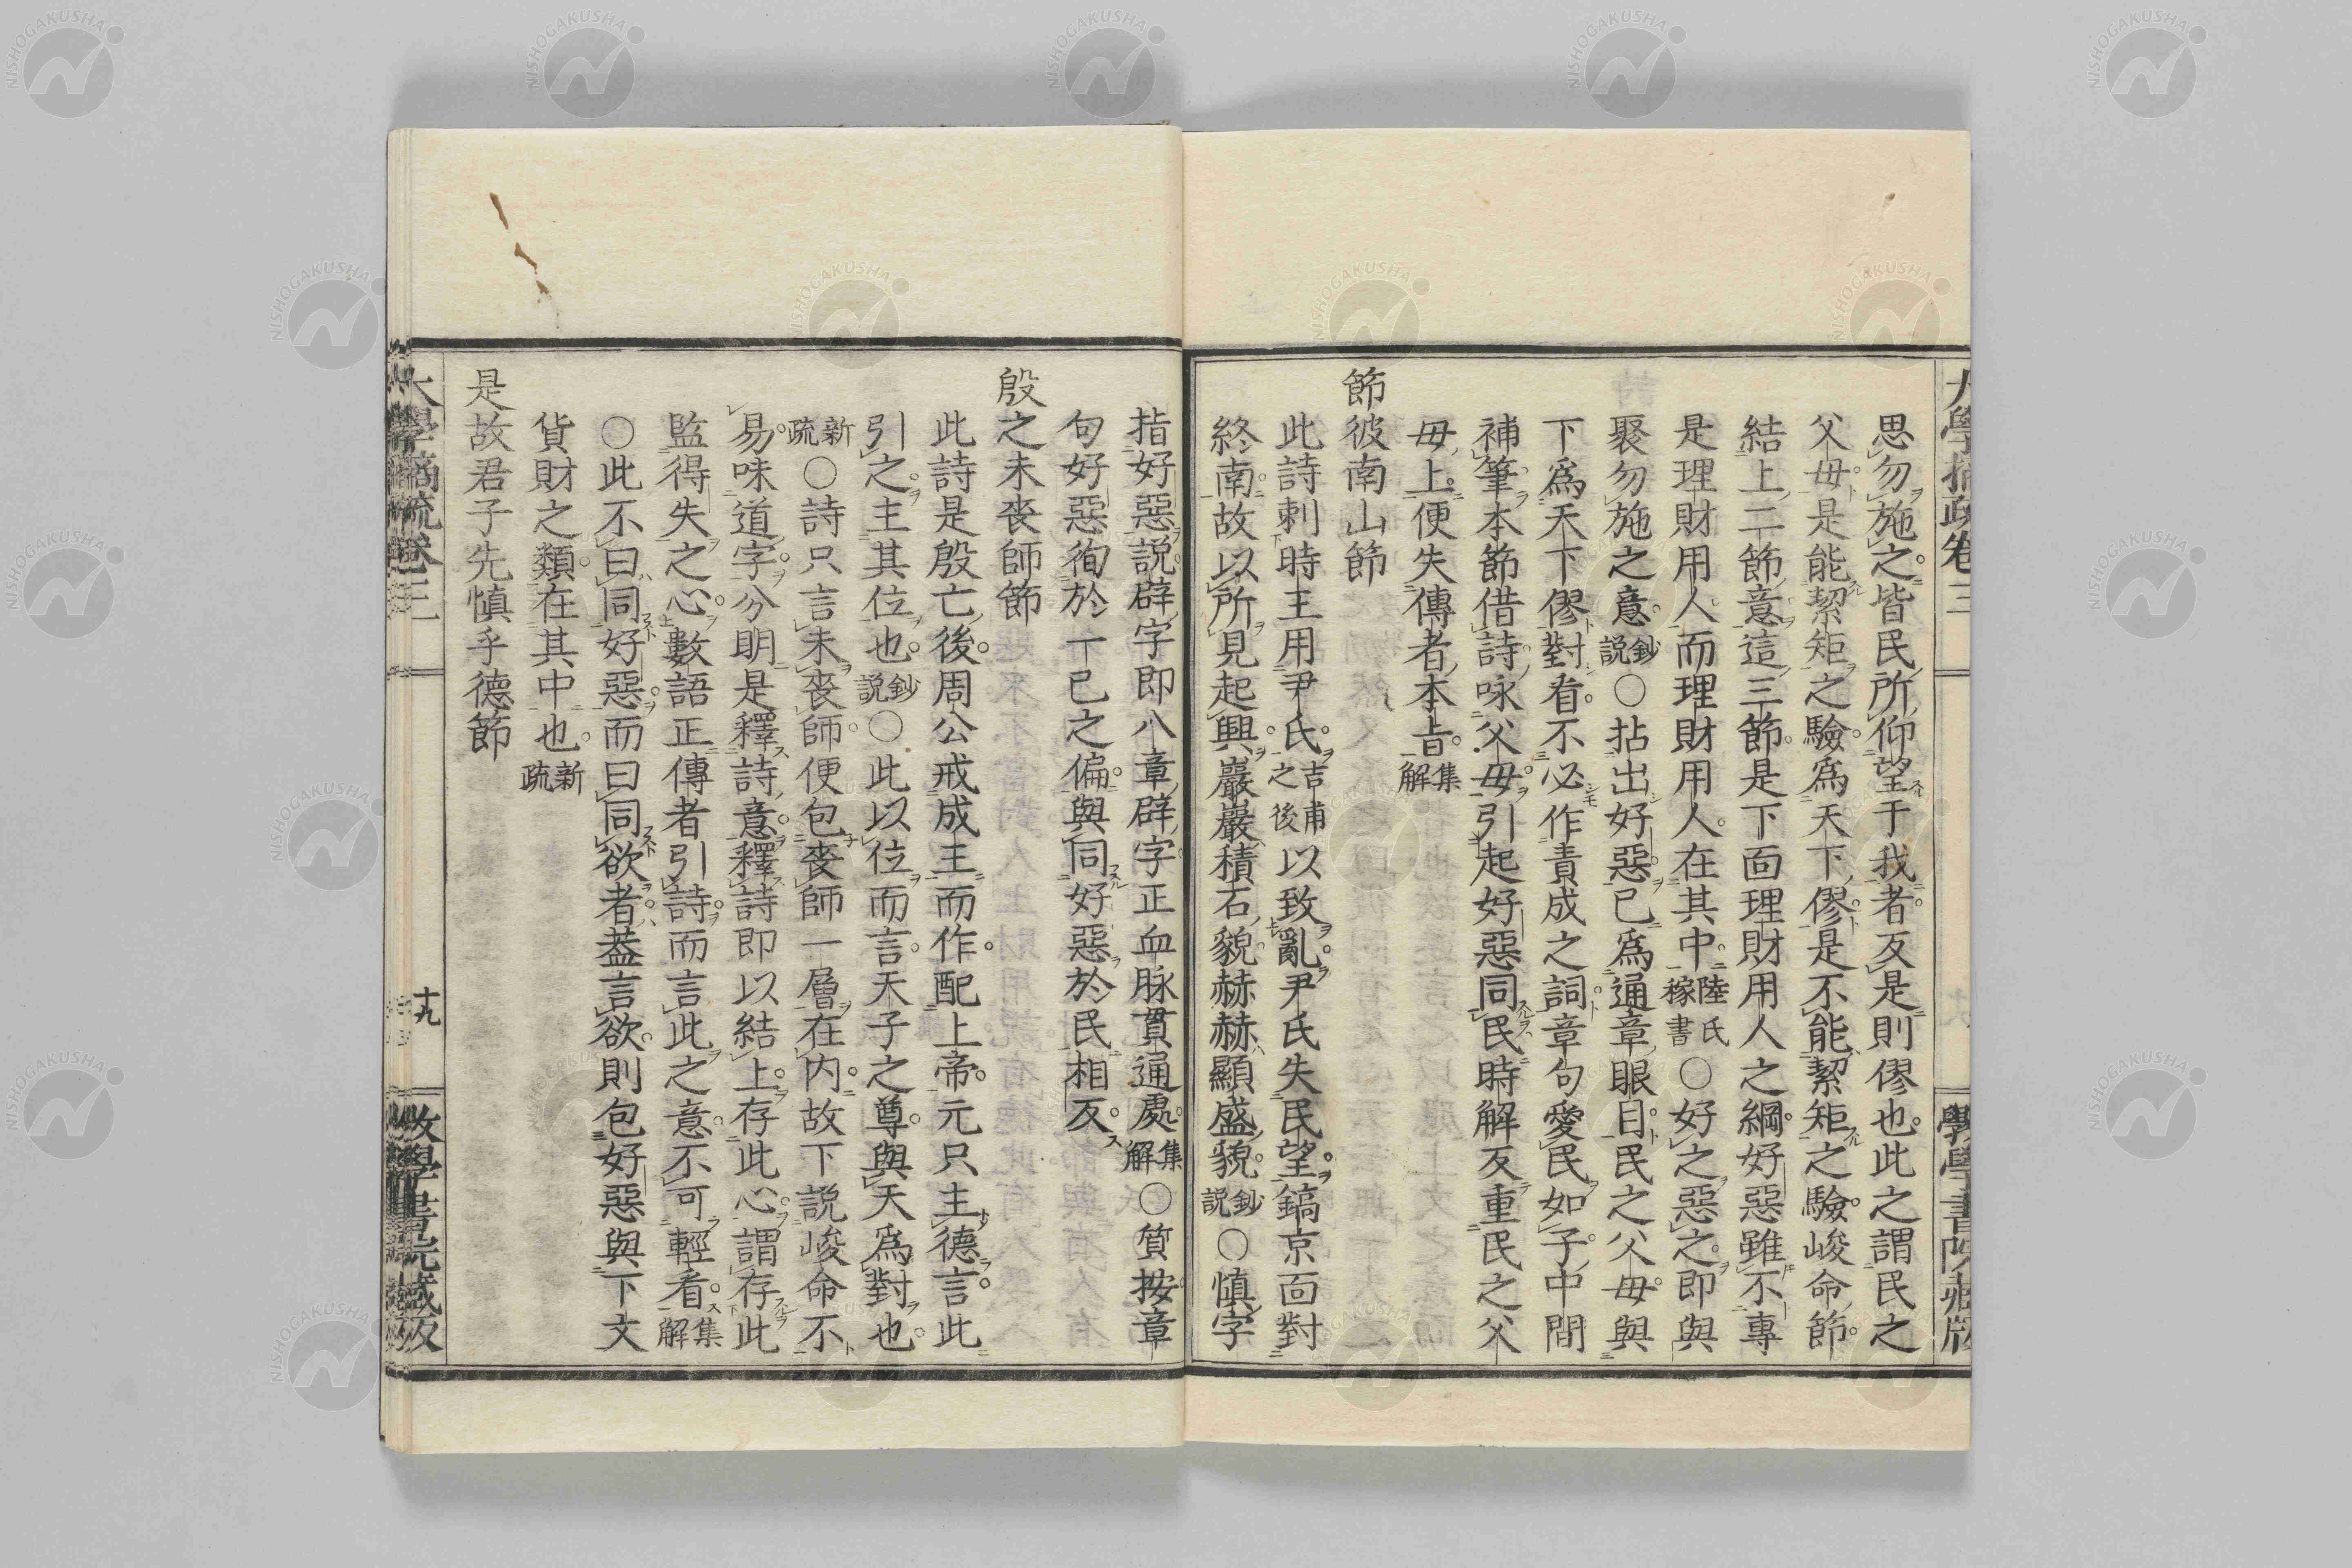 大學摘疏卷三
思勿施之皆民所仰望于我者反是則僇也此之謂民之
父母是能絜矩之驗爲天下僇是不能絜矩之驗峻命節
結上二節意這三節是下面理財用人之綱好惡雖不專
是理財用人而理財用人在其中陸氏稼書〇好之惡之即與
聚勿施之意鈔説〇拈出好惡已爲通章眼目民之父母與
下爲天下僇對看不必作責成之詞章句愛民如子中間
補筆本節借詩咏父母引起好惡同民時解反重民之父
母上便失傳者本旨集解
節彼南山節
此詩刺時王用尹氏吉甫之後以致亂尹氏失民望鎬京面對
終南故以所見起興巖巖積石貌赫赫顯盛貌鈔説〇慎字
指好惡説辟字即八章辟字正血脉貫通處集解〇質按章
句好惡徇於一己之偏與同好惡於民相反
殷之未喪師節
此詩是殷亡後周公戒成王而作配上帝元只主德言此
引之主其位也鈔説〇此以位而言天子之尊與天爲對也
新疏〇詩只言未喪師便包喪師一層在内故下説峻命不
易味道字分明是釋詩意釋詩即以結上存此心謂存此
監得失之心數語正傳者引詩而言此之意不可輕看集解
〇此不曰同好惡而曰同欲者葢言欲則包好惡與下文
貨財之類在其中也新疏
是故君子先慎乎德節
大學摘疏卷三
十九
教學書院藏版